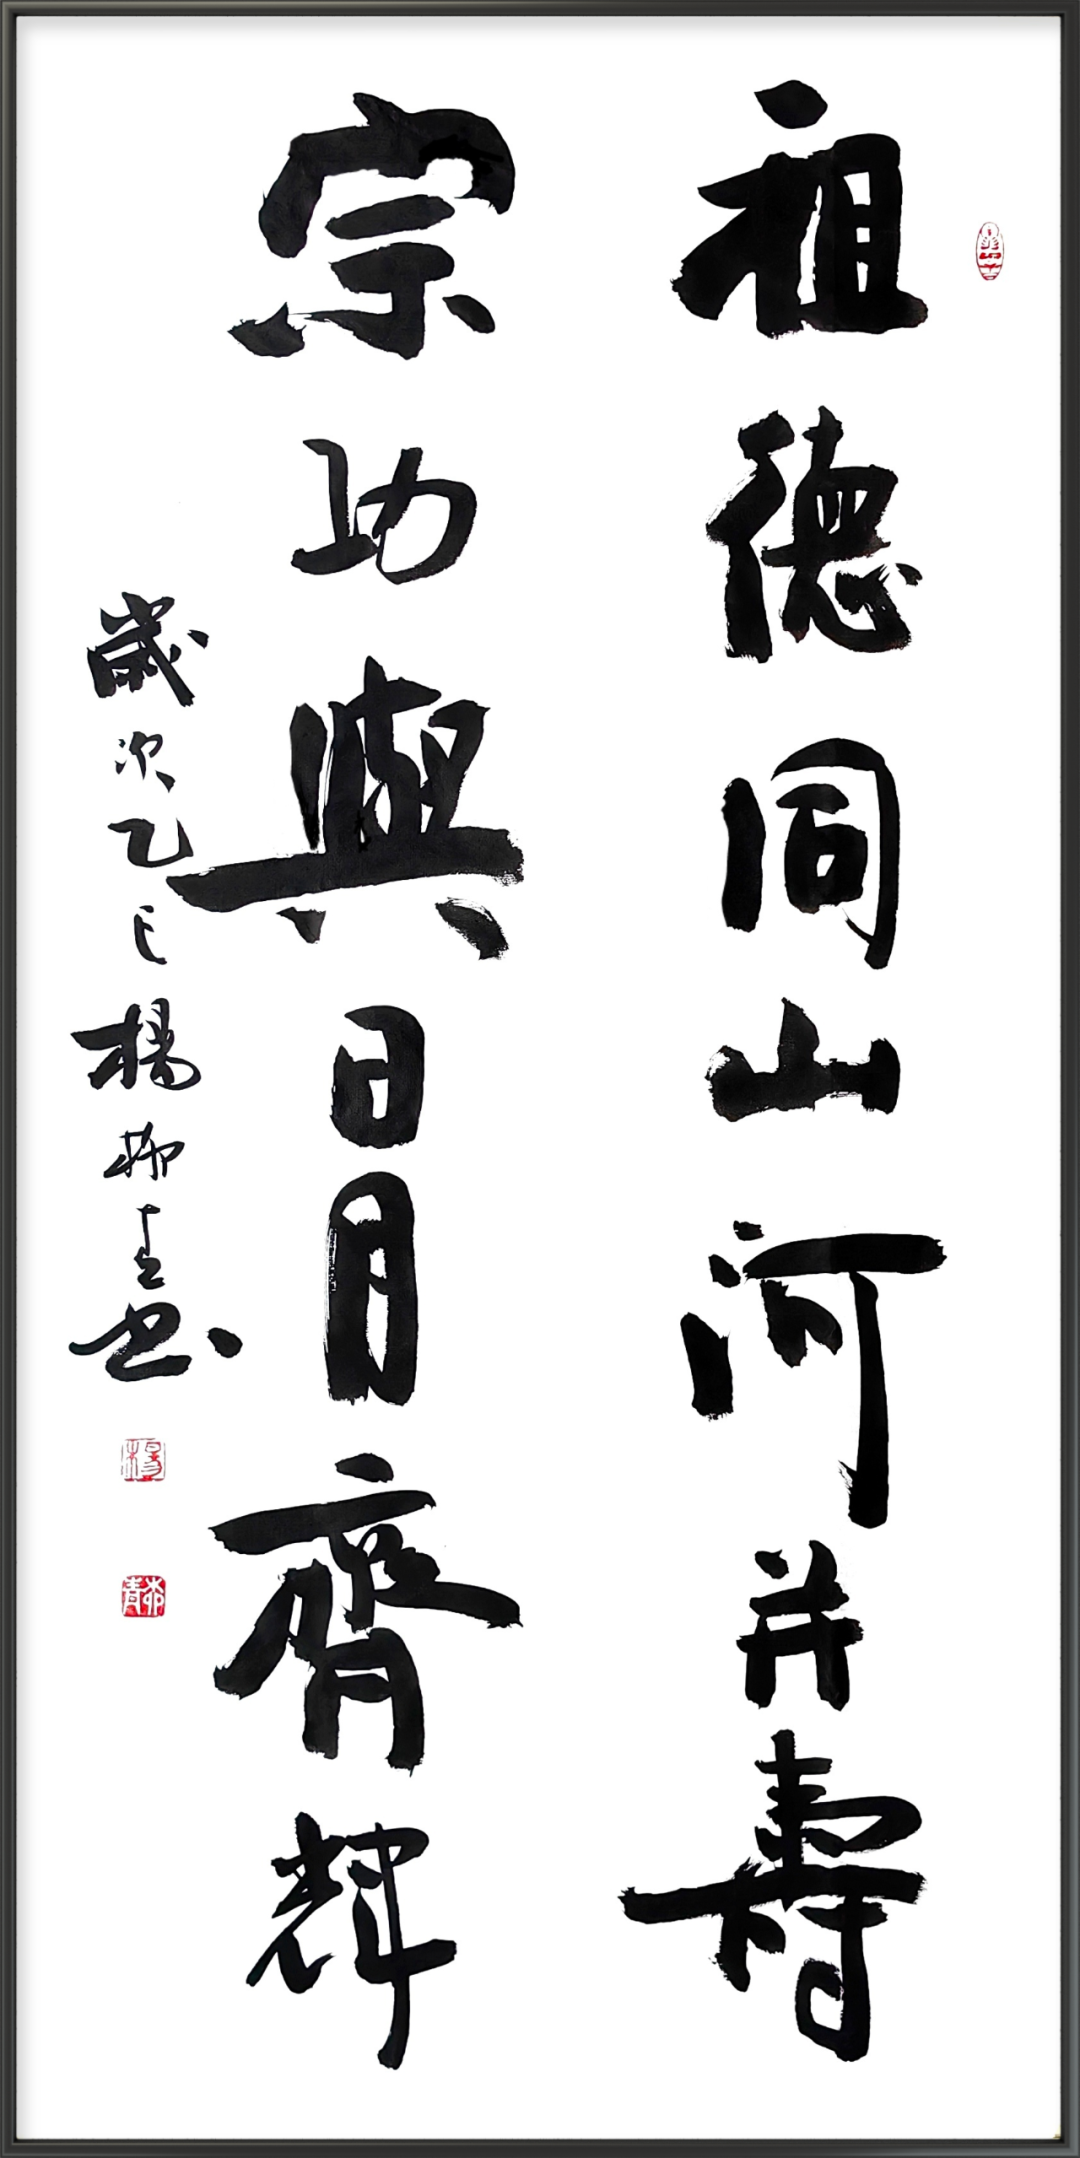 祖德同山河并壽
宗功與日月齊輝
歲次乙巳楊柳青書
楊
柳青